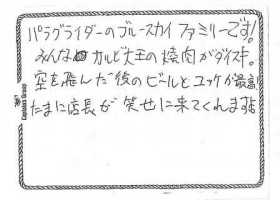 パラグライダーのブルースカイファミリーです!
みんなカルビ大王の焼肉がダイスキ。
空を飛んだ後のビールとユッケが最高
たまに店長が 笑せに来てくれます
Captains Group